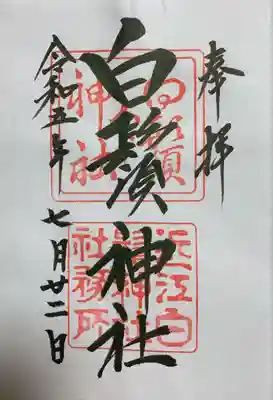 奉拝
白鬚神社
令和五年 七月廿二日
白鬚
神社
近江白
鬚神社
社務所